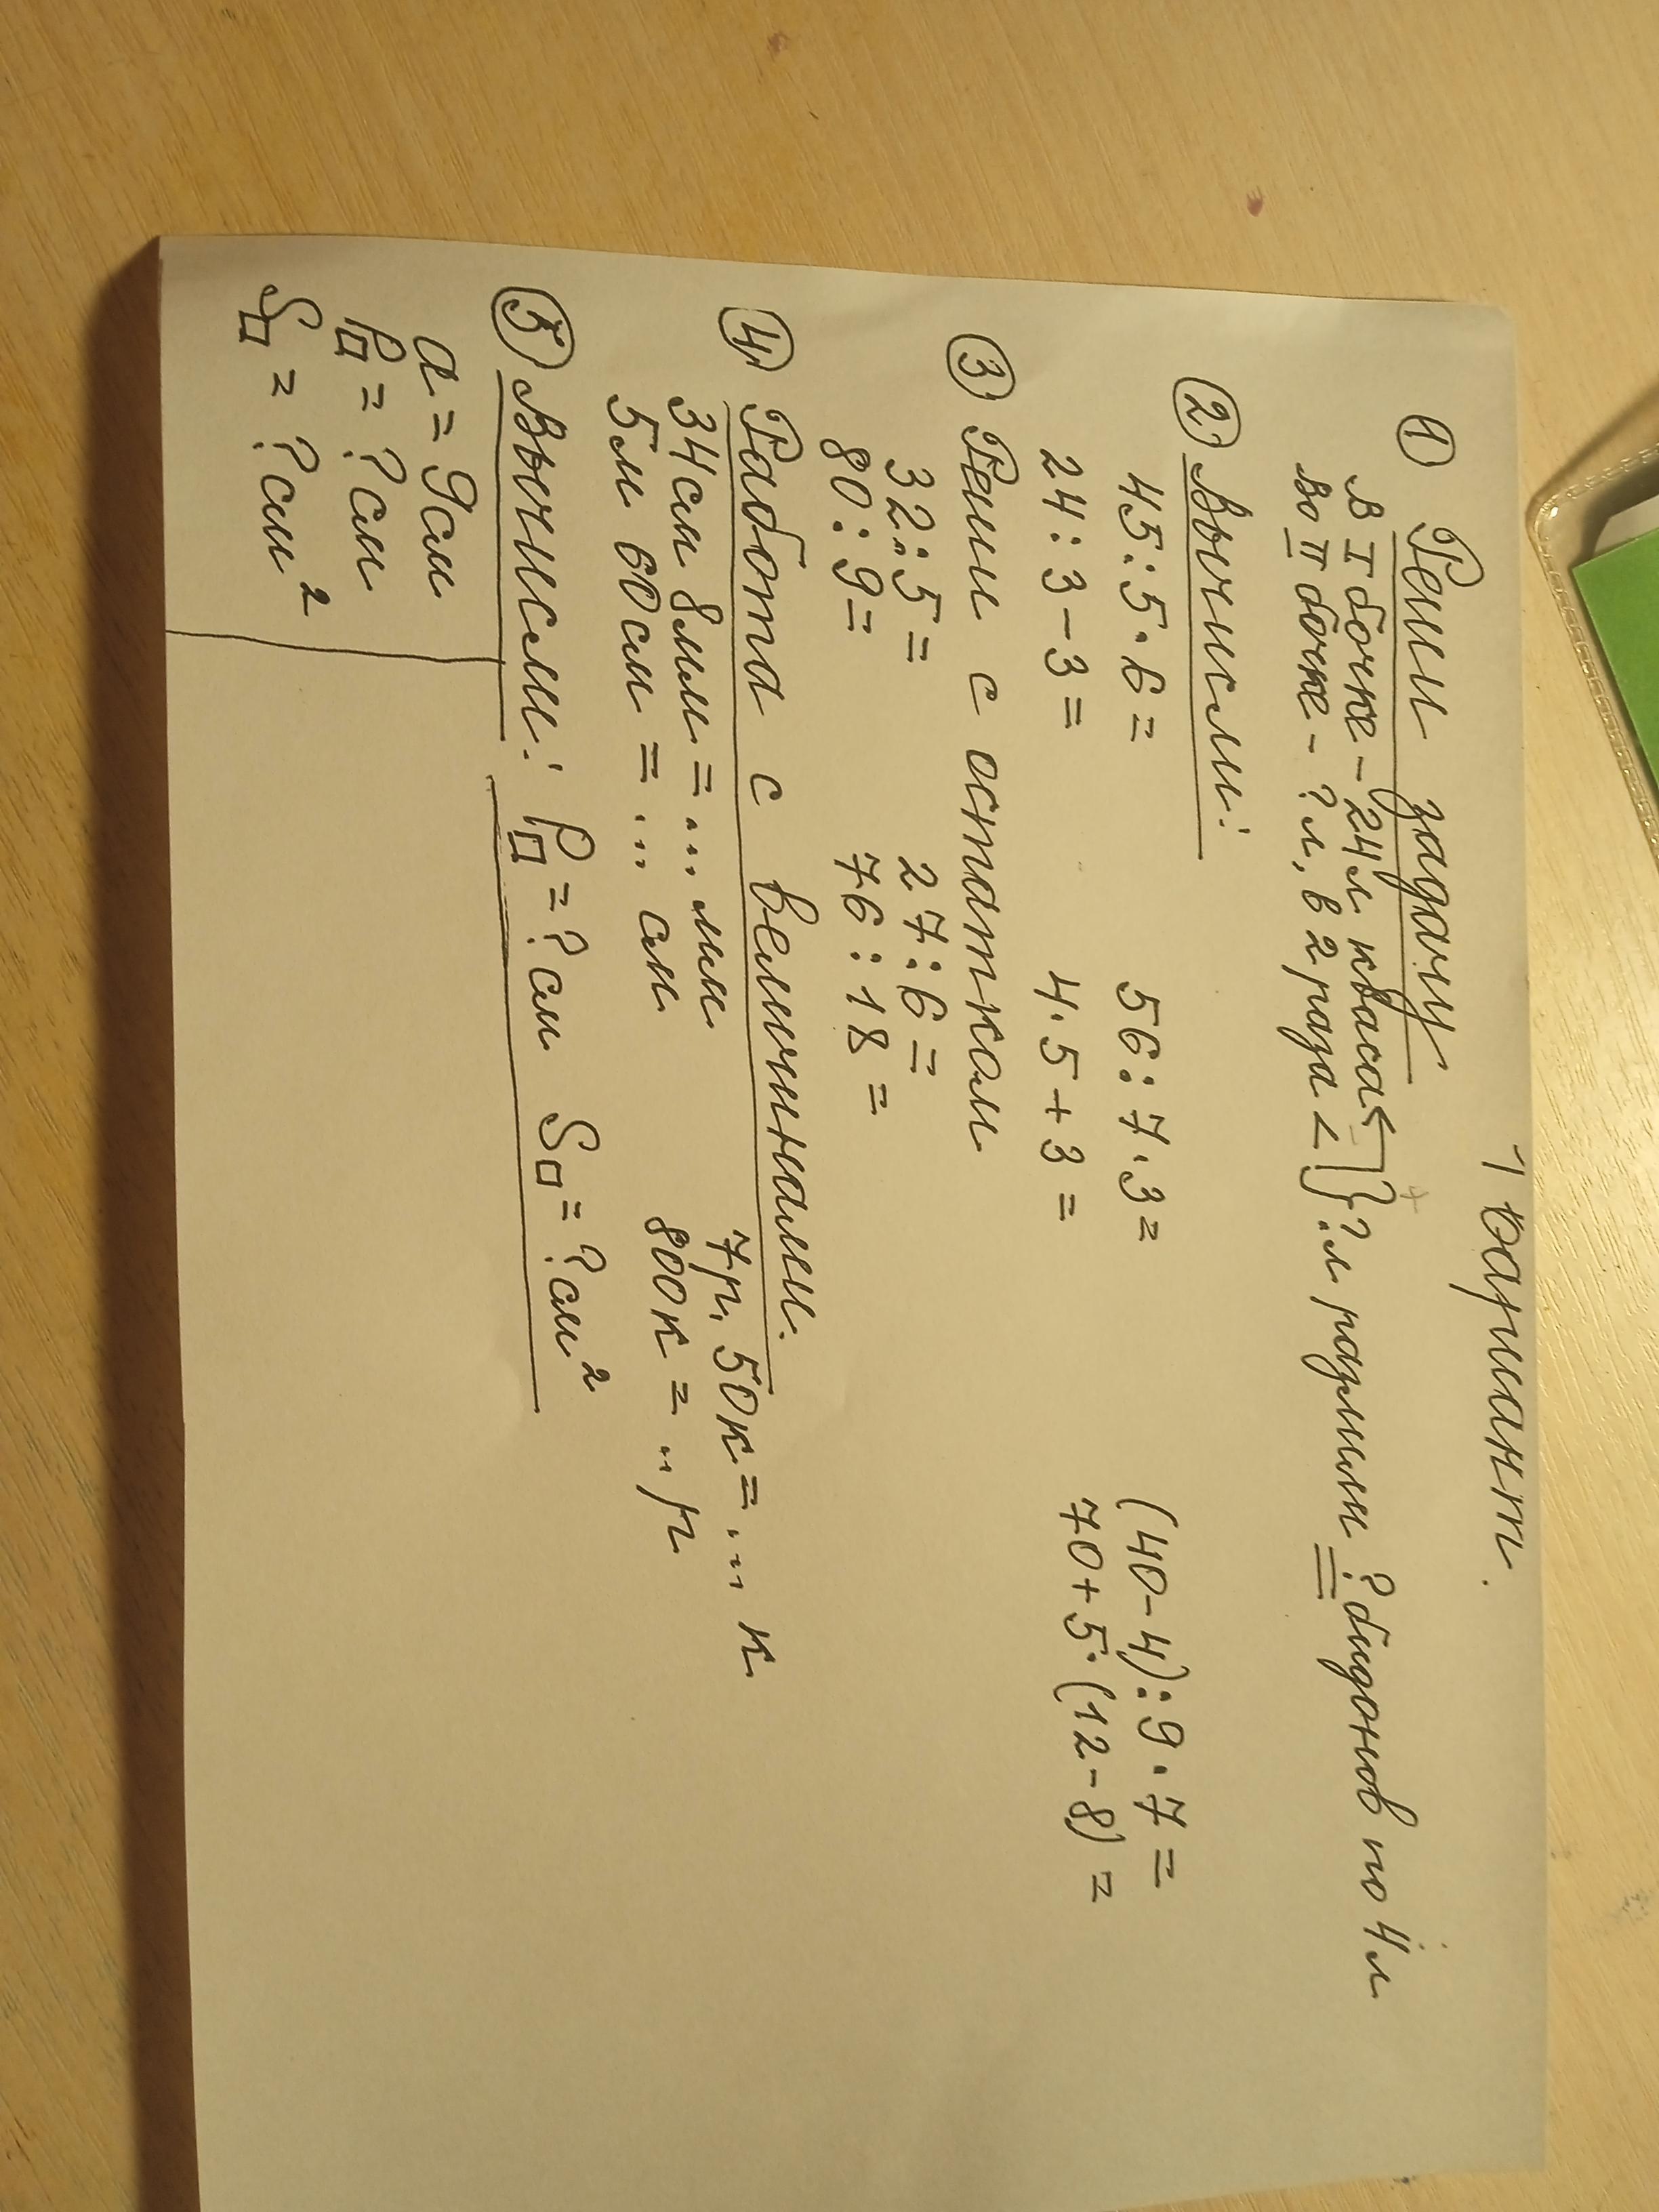 1 вариант.
① Реши задачу
В I бочке - 24 л кваса } ? л разлили ? бидонов по 4 л
Во II бочке - ? л, в 2 раза <
② Вычисли:
45 : 5 · 6 = 56 : 7 · 3 = (40 - 4) : 9 · 7 =
24 : 3 - 3 = 4 · 5 + 3 = 70 + 5 · (12 - 8) =
③ Реши с остатком
32 : 5 = 27 : 6 =
80 : 9 = 76 : 18 =
④ Работа с величинами.
34 см 8 мм = ... мм 7 р. 50 к = ... к
5 м 60 см = ... см 800 к = ... р
⑤ Вычисли: P□ = ? см S□ = ? см²
a = 9 см
P□ = ? см
S□ = ? см²